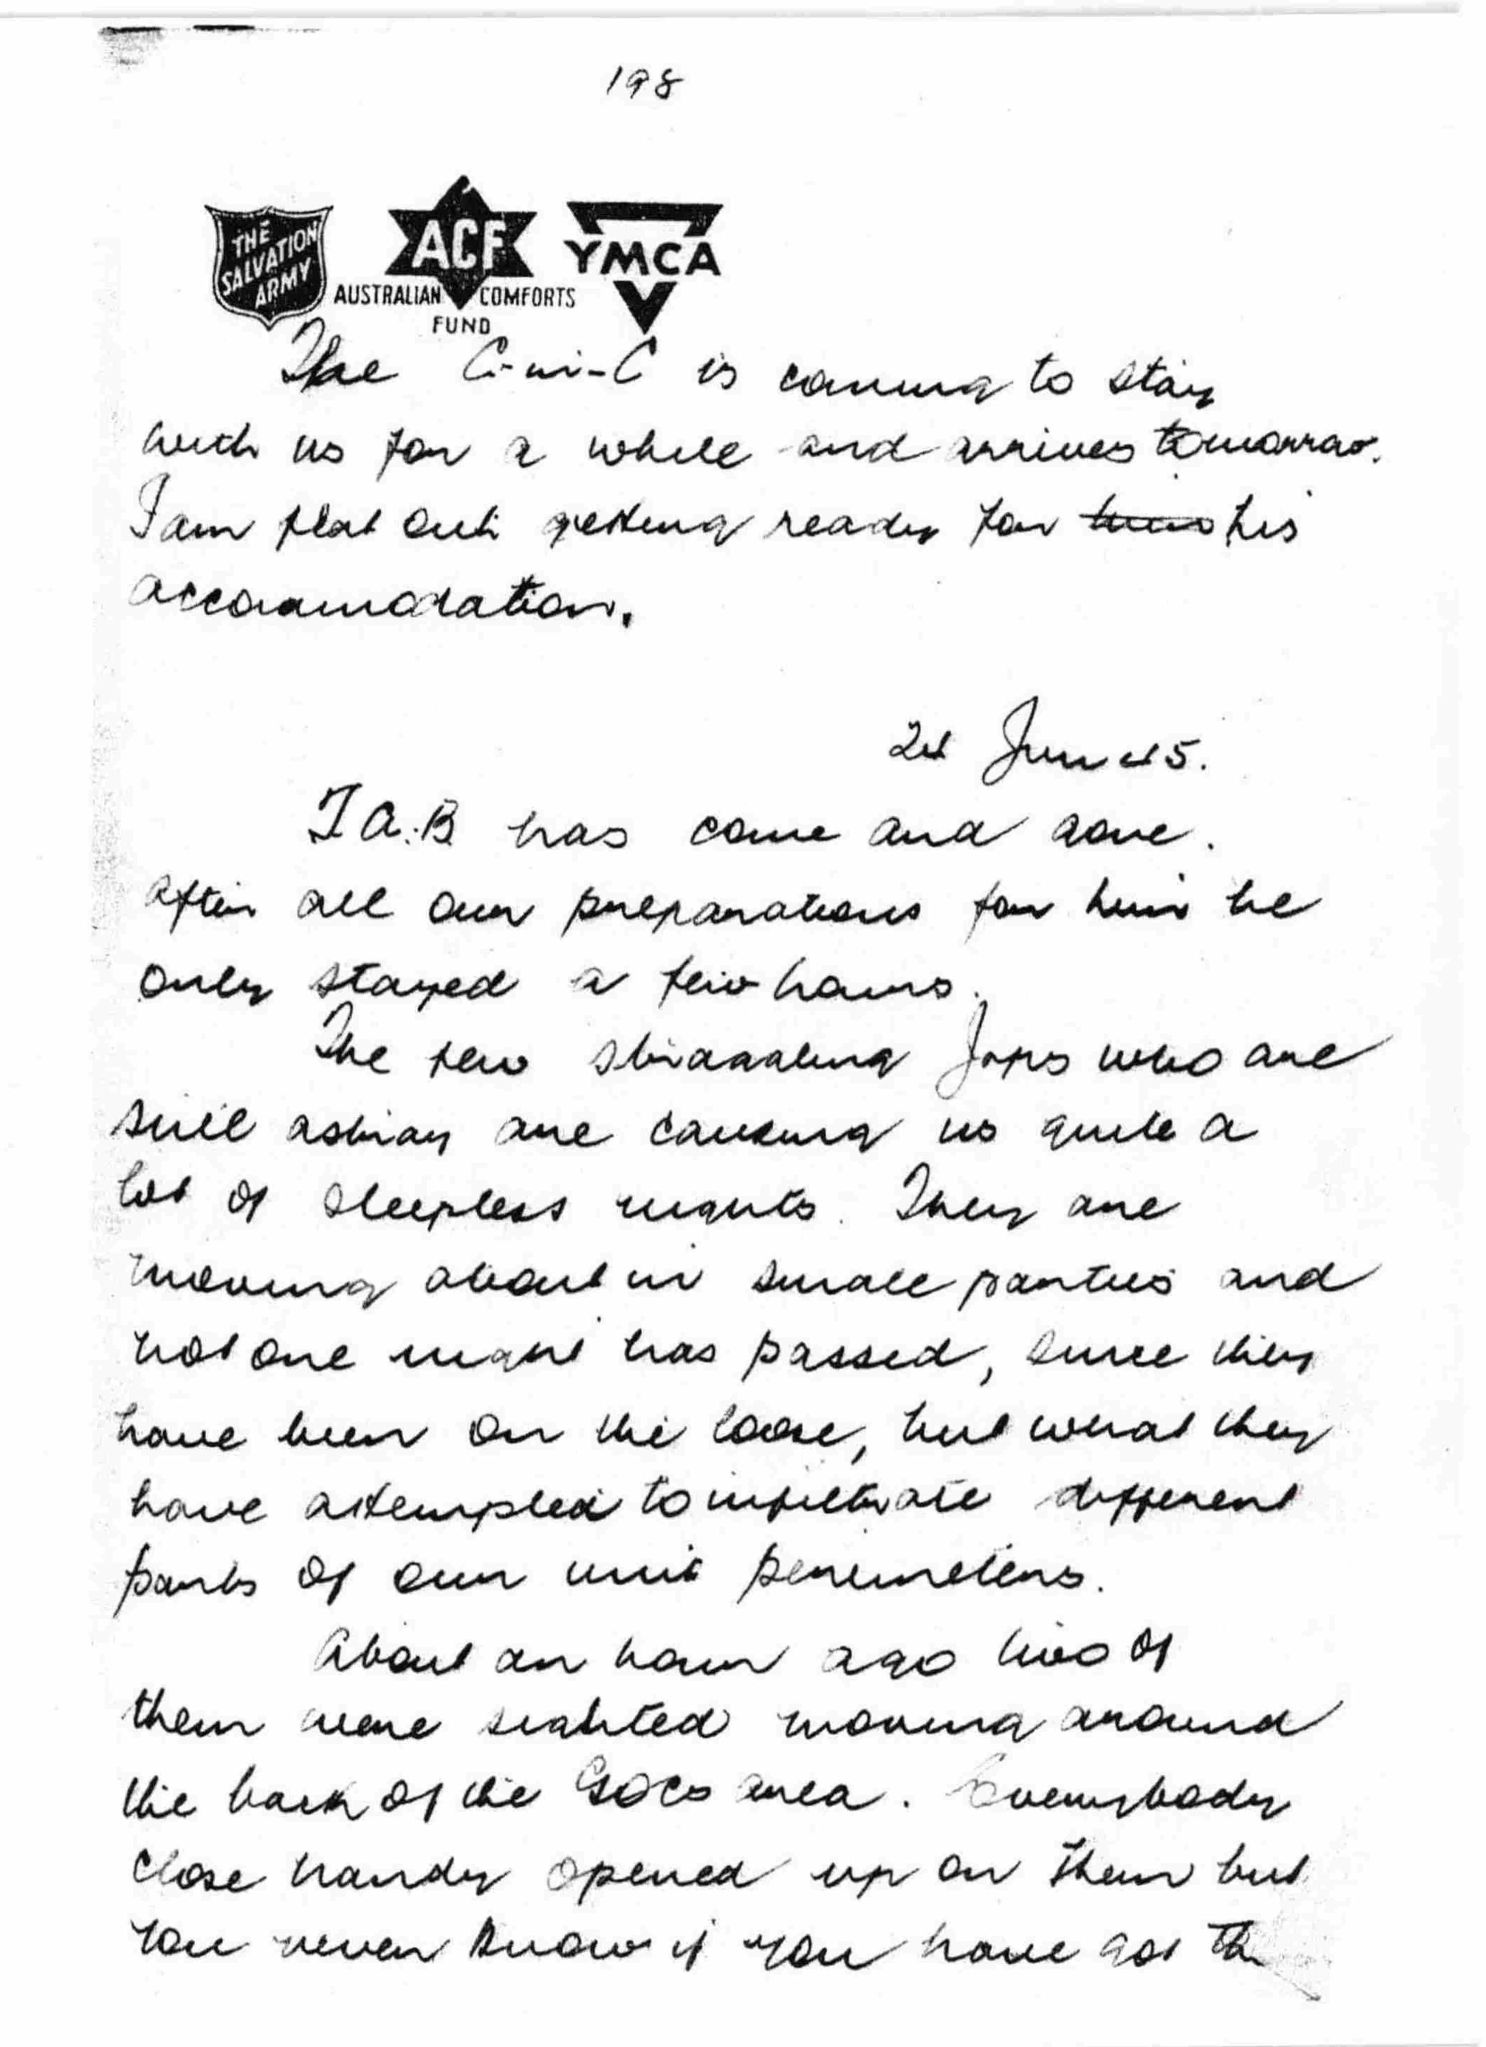 198
THE
SALVATION
ARMY
ACF
AUSTRALIAN COMFORTS
FUND
YMCA
The C-in-C is coming to stay
with us for a while and arrives tomorrow.
I am flat out getting ready for him his
accommodation.
24 Jun 45.
T.A.B has come and gone.
After all our preparations for him he
only stayed a few hours.
The few straggling Japs who are
still astray are causing us quite a
lot of sleepless nights. They are
moving about in small parties and
not one night has passed, since they
have been on the loose, but what they
have attempted to infiltrate different
parts of our unit perimeters.
About an hour ago two of
them were sighted moving around
the back of the GOCs area. Everybody
close handy opened up on them but
you never know if you have got th